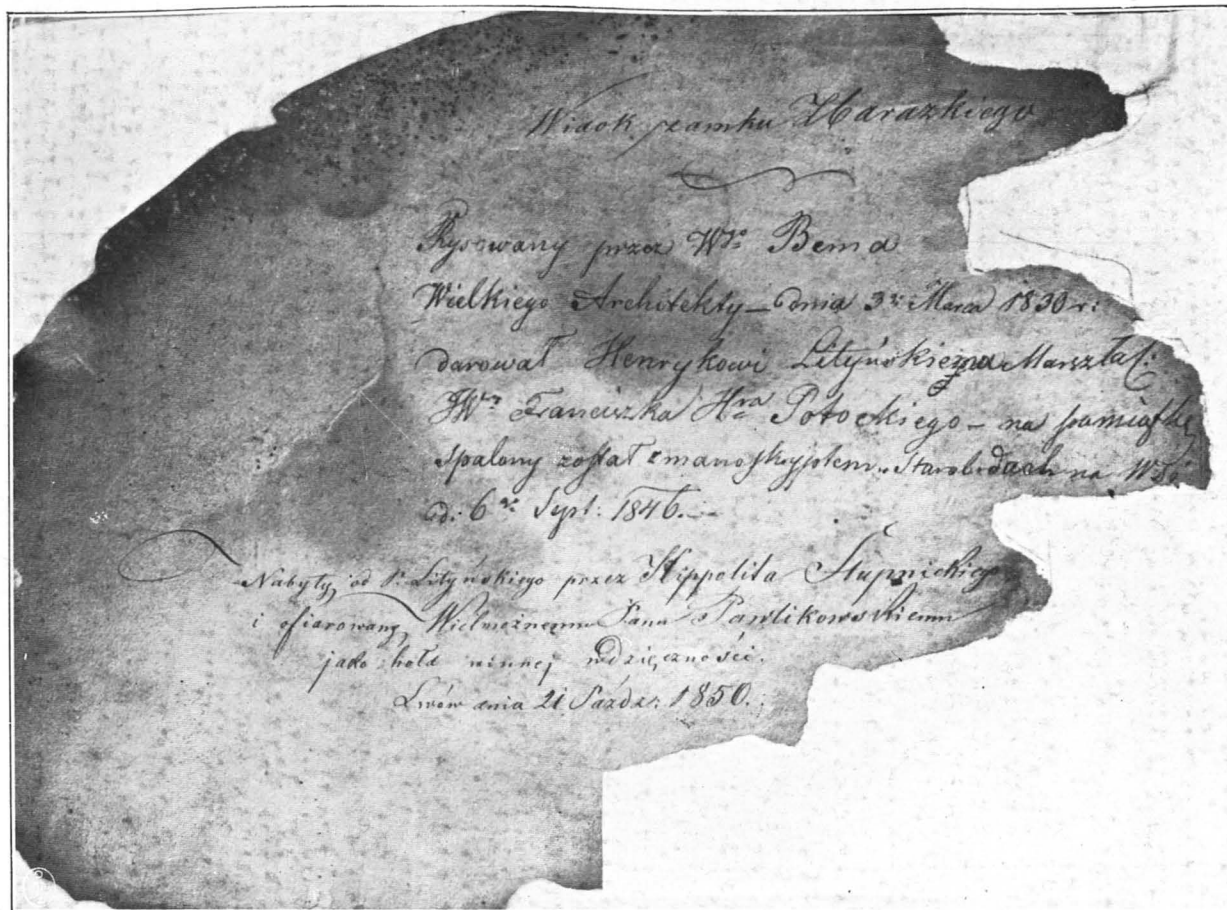 Widok zamku Zbarazkiego
Rysowany przez Wgo Bema
Wielkiego Architekty – dnia 3go Marca 1830 r:
darował Henrykowi Lityńskiemu Marszłał:
JWgo Franciszka Hra Potockiego – na pamiątkę
spalony został z manoskryptem w Starobrodach na
d: 6go Sept: 1846.
Nabyty od P. Lityńskiego przez Hippolita Stupnickiego
i ofiarowany Wielmożnemu Panu Pawlikowskiemu
jako hołd winnej wdzięczności.
Lwów dnia 21 Paźdz: 1850.